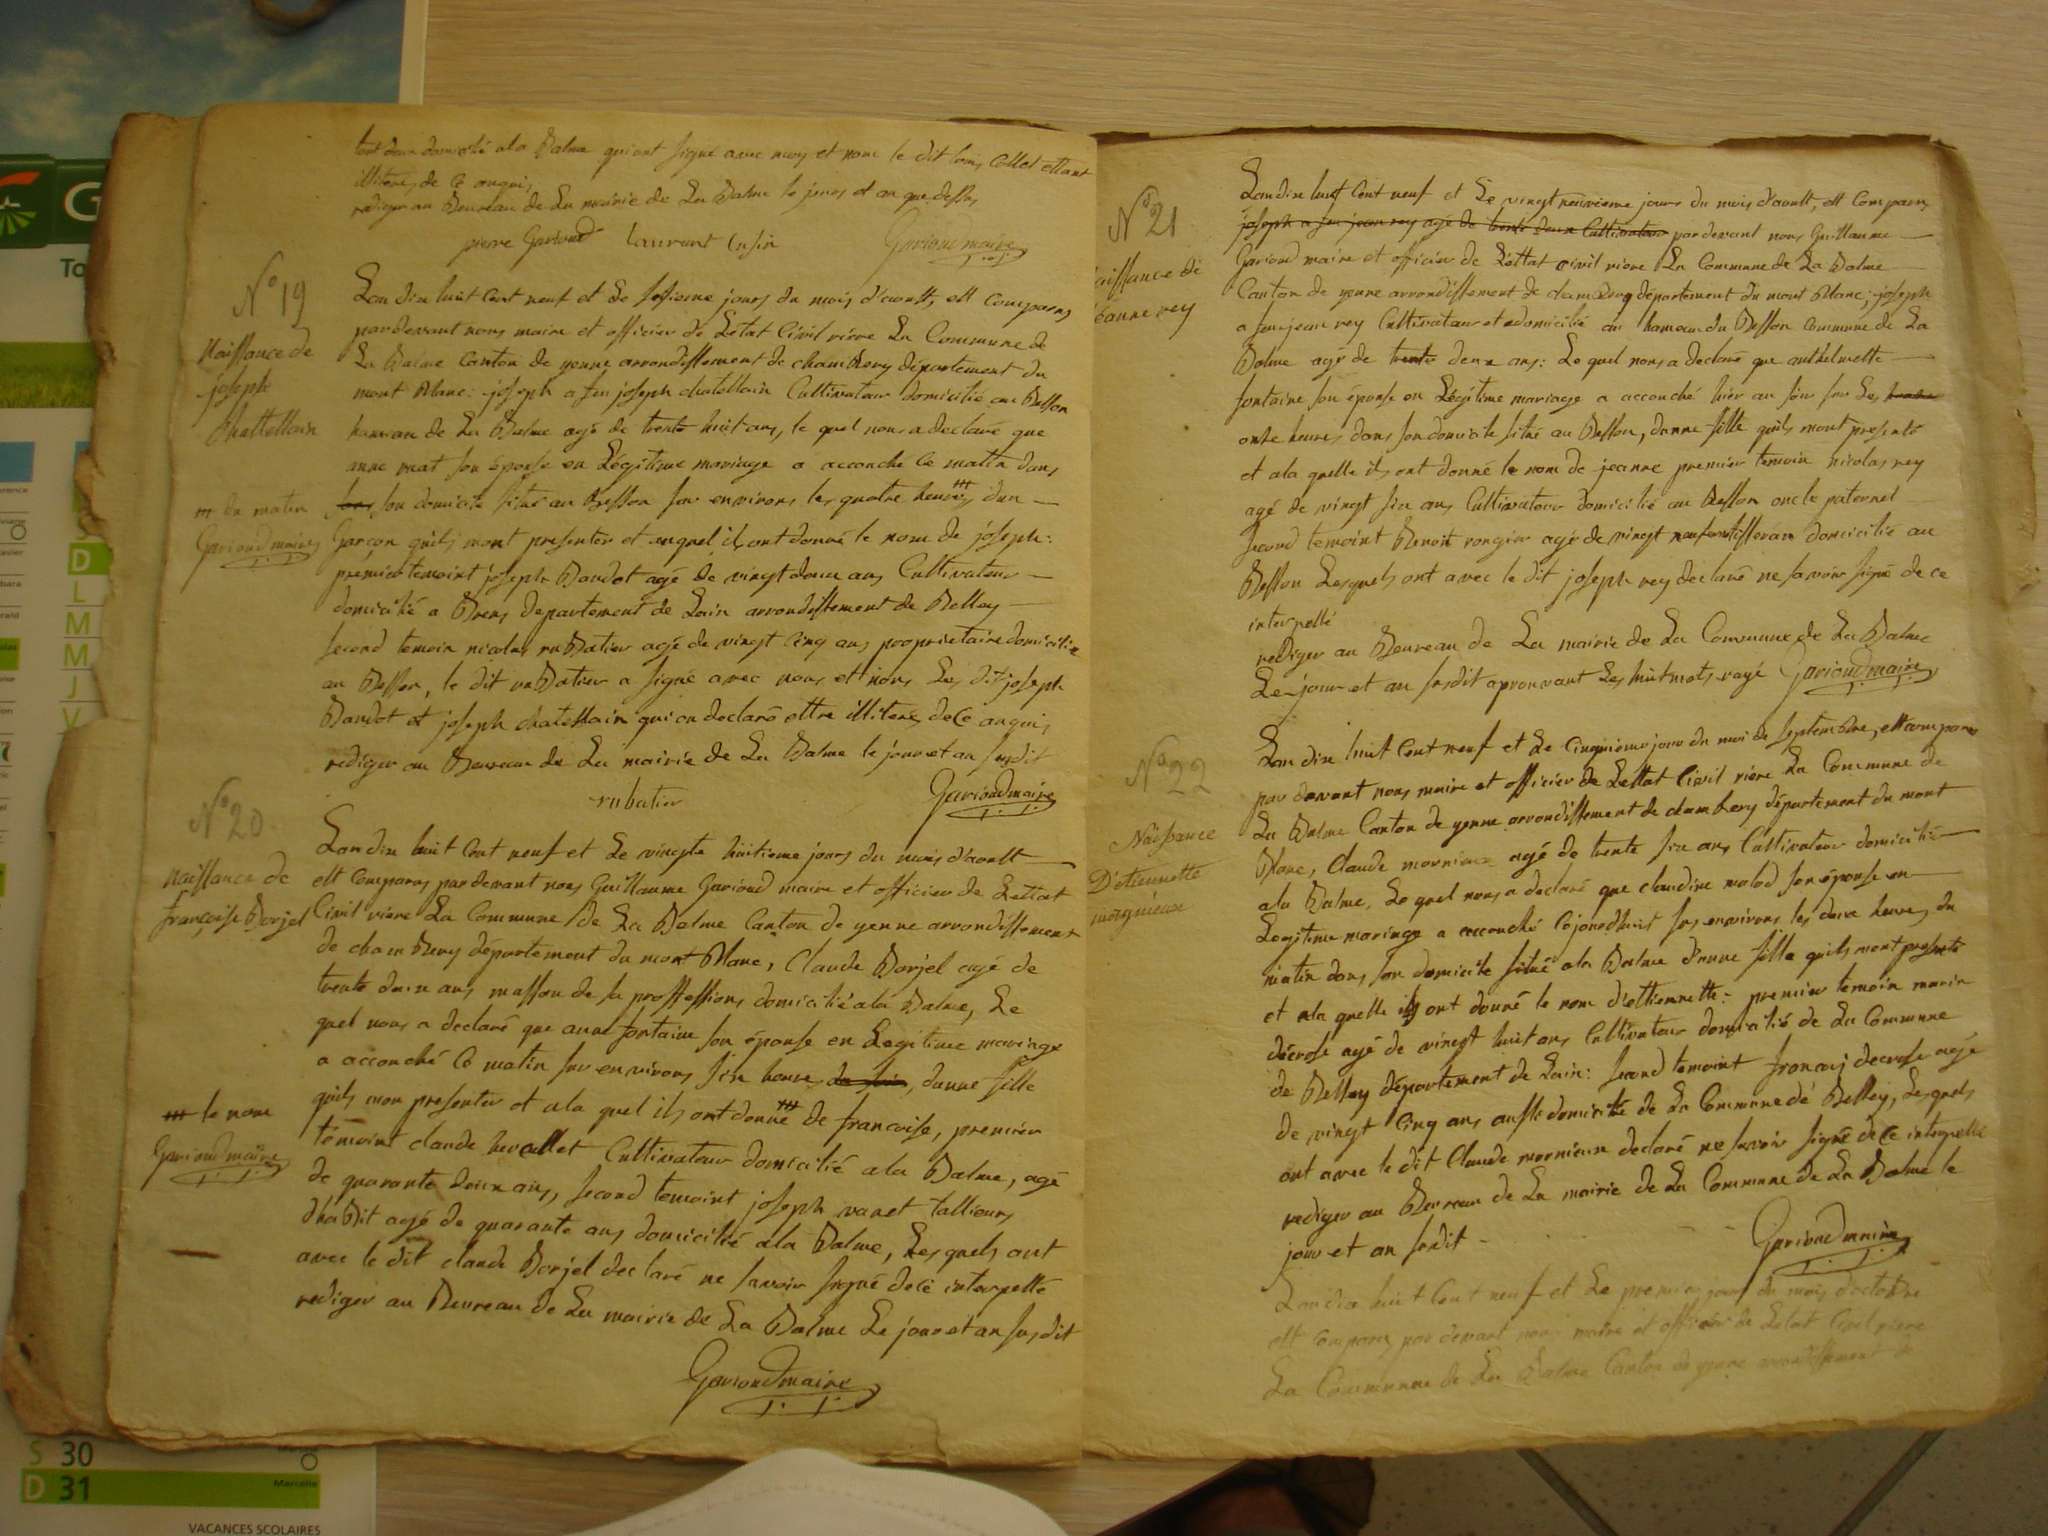 tout deux domicilié ala Balme qui ont signé avec moy et nom le dit louis Collet ettant
illiteré, de ce anquis
rediger au Beureau de La mairie de La Balme le jours et an que dessus
pierre Garioud laurent Cusin Garioud maire
N° 19
Naissance de
joseph
Chattellain
Lan dix huit Cent neuf et Le seſieme jours du mois d'aoutt, ett Comparus
pardevant nous maire et officier de Letat Civil riere La Commune de
La Balme Canton de yenne arrondissement de chambery département du
mont Blanc: joseph a feu joseph chatellain Cultivateur domicilié au Besson
hamau de La Balme agé de trente huit ans, le quel nous a declaré que
anne mat son éponse en Légitime mariage a accouché Ce matin dans
son domicile situé au Besson sur environs les quatre heures dun
du matin
Garioud maire
Garçon quils mont presenter et auquel ils ont donné le nom de joseph:
premier temoint joseph Baudot agé de vingt deux ans Cultivateur
domicilié a Brens département de Lain arrondissement de Belley
second temoin nicolas rubatier agé de vingt Cinq ans proprietaire domicilié
au Besson, le dit rubatier a signé avec nous et nons Les dit joseph
Baudot et joseph chatellain qui on declaré ettre illiteré, de Ce anquis
rediger au Beureau de La mairie de La Balme le jour et an susdit
rubatier Garioud maire
N° 20
Naissance de
françoise Borjel
Lan dix huit Cent neuf et Le vingte huitieme jours du mois d'aoutt
ett Comparus par devant nous Guillaume Garioud maire et officier de Lettat
Civil riere La Commune de La Balme Canton de yenne arrondissement
de chambery département du mont Blanc, Claude Borjel agé de
trente deux ans masson de sa proffession, domicilié ala Balme, Le
quel nous a declaré que anne fontaine son éponse en Legitime mariage
a accouché Ce matin sur environs six heures du soir, dunne fille
quils mon presenter et ala quel ils ont donné de francoise, premier
le nom
Garioud maire
témoint claude Cultivateur domicilié ala Balme, agé
de quarante deux ans, second temoint joseph vanet tallieurs
d'habit agé de quarante ans domicilié ala Balme, Lesquels ont
avec le dit claude Borjel declaré ne savoir signé de ce interpellé
rediger au Beureau de La mairie de La Balme Le jour et an susdit
Garioud maire
N° 21
aissance de
jeanne rey
Lan dix huit Cent neuf et Le vingt neuvieme jours du mois d'aoutt, ett Comparu
joseph a feu jean rey agé de trente deux Cultivateur par devant nous Guillaume
Garioud maire et officier de Lettat civil riere La Commune de La Balme
Canton de yenne arrondissement de chambery département du mont Blanc; joseph
a feu jean rey Cultivateur et domicilié au hameau du Besson Commune de La
Balme agé de trente deux ans: Le quel nous a declaré que anthelmette
fontaine son éponse en Légitime mariage a accouché hier au soir sur Les
onze heures dans son domicile situé au Besson, dunne fille quils mont presenté
et ala quelle ils ont donné le nom de jeanne premier temoin nicolas rey
agé de vingt six ans Cultivateur domicilié au Besson oncle paternel
second temoint Benoit rongier agé de vingt neuf ans tisseran domicilié au
Besson Lesquels ont avec le dit joseph rey declaré ne savoir signé de ce
interpellé
rediger au Beureau de La mairie de La Commune de La Balme
Le jour et an susdit aprouvant Les huit mots rayé Garioud maire
N° 22
Naissance
D'etiennette
mornieux
Lan dix huit Cent neuf et Le Cinquieme jour du moi de septembre, ett Comparu
par devant nous maire et officier de Lettat Civil riere La Commune de
La Balme Canton de yenne arrondissement de chambery département du mont
Blanc, Claude mornieux agé de trente six ans Cultivateur domicilié
ala Balme, Le quel nous a declaré que claudine molod son éponse en
Legitime mariage a accouché Cejourdhuit sur environs les deux heures du
matin dans son domicile situé ala Balme d'unne fille quils mont presenté
et ala quelle ils ont donné le nom d'ettiennette: premier temoin marin
décrose agé de vingt huit ans Cultivateur domicilié de La Commune
de Belley département de Lain: second temoint francois decrose agé
de vingt Cinq ans aussi domicilié de La Commune de Belley, Lesquels
ont avec le dit Claude mornieux declaré ne savoir signé de Ce interpellé
rediger au Beureau de La mairie de La Commune de La Balme le
jour et an susdit Garioud maire
Lan dix huit Cent neuf et Le premier jours du mois d'octobre
ett Comparus par devant nous maire et officier de Letat Civil riere
La Commune de La Balme Canton de yenne arrondissement de
S 30
D 31
Marcelle
VACANCES SCOLAIRES
G
To
D
L
M
M
J
V